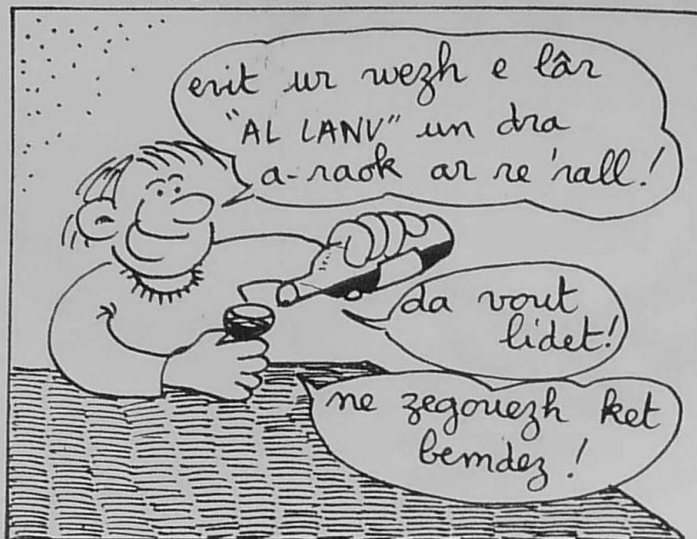 evit ur wezh e lâr
"AL LANV" un dra
a-raok ar re 'rall!
da vout
lidet!
ne zegouezh ket
bemdez!